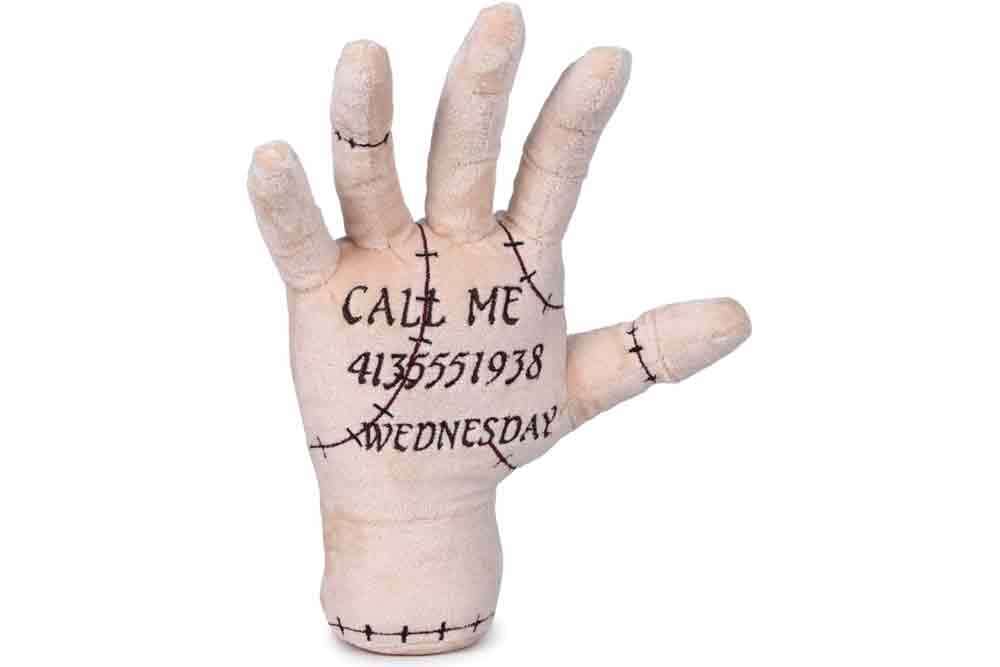 CALL ME
4135551938
WEDNESDAY